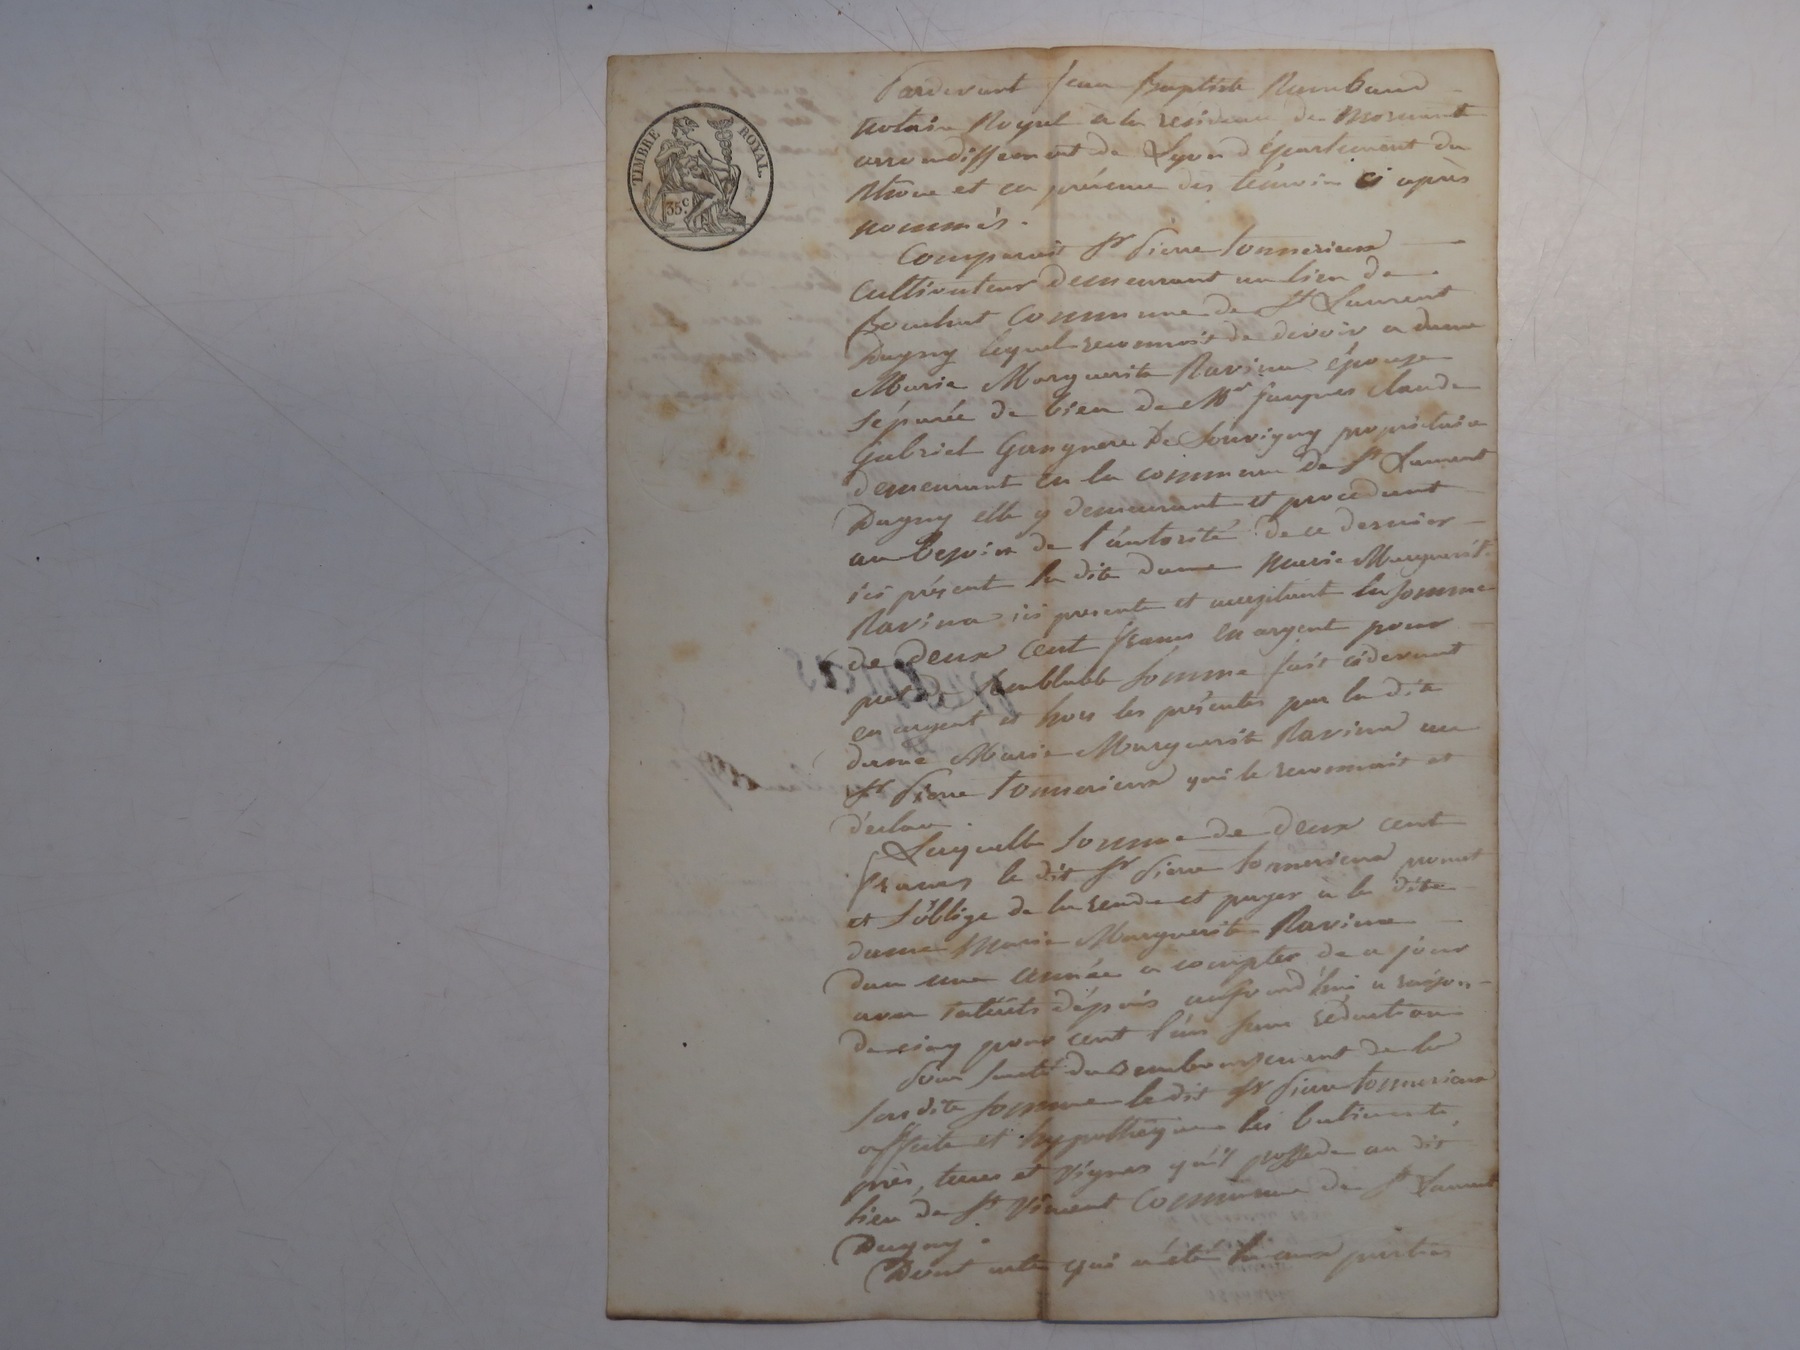 TIMBRE ROYAL.
35 c.
Pardevant Jean Baptiste Rambaud
notaire Royal à la residence de Mornant
arrondissement de Lyon département du
Rhone et en présence des témoins ci après
nommés.
Comparait Sr Pierre Tonnerieux
Cultivateur demeurant au lieu de
Bouchat Commune de St Laurent
Dagny lequel reconnoit de devoir a dame
Marie Marguerite Ravina épouse
séparée de bien de Mr Jacques Claude
Gabriel Gangnere De Souvigny propriétaire
demeurant en la commune de St Laurent
Dagny elle y demeurant et procedant
au besoin de l'autorité de ce dernier
ici présent la dite dame Marie Marguerite
Ravina ici presente et acceptant la somme
de deux cent francs en argent pour
pret de semblable somme fait cidevant
en argent et hors les présentes par la dite
dame Marie Marguerite Ravina au
Sr Pierre Tonnerieux qui le reconnait et
déclare.
Laquelle somme de deux cent
francs le dit Sr Pierre Tonnerieux promet
et s'oblige de la rendre et payer à la dite
dame Marie Marguerite Ravina
dans une année a compter de ce jour
avec intérêts dépuis aujourd'hui a raison
de cinq pour cent l'an sans réduction
Pour sureté du remboursement de la
susdite somme le dit Sr Pierre Tonnerieux
affecte et hypothèque les batiments
près, terres et vignes qu'il possede au dit
lieu de St Vincent Commune de St Laurent
Dagny.
Dont acte qui a été lu aux parties